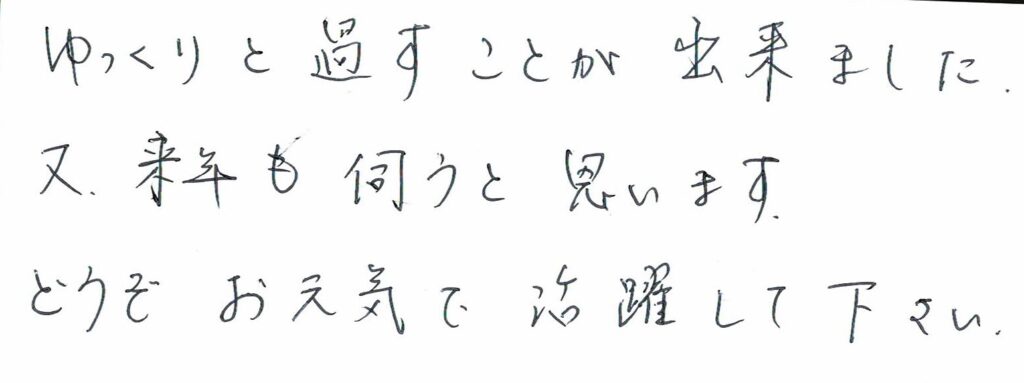 ゆっくりと過すことが出来ました.
又.来年も伺うと思います.
どうぞお元気で活躍して下さい.